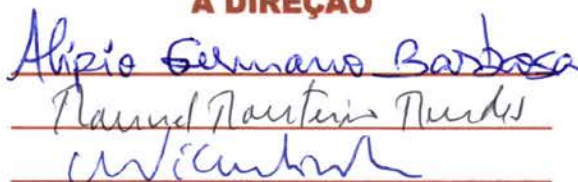 A DIREÇÃO
Alipio Germano Barbosa
Manuel Monteiro Mendes